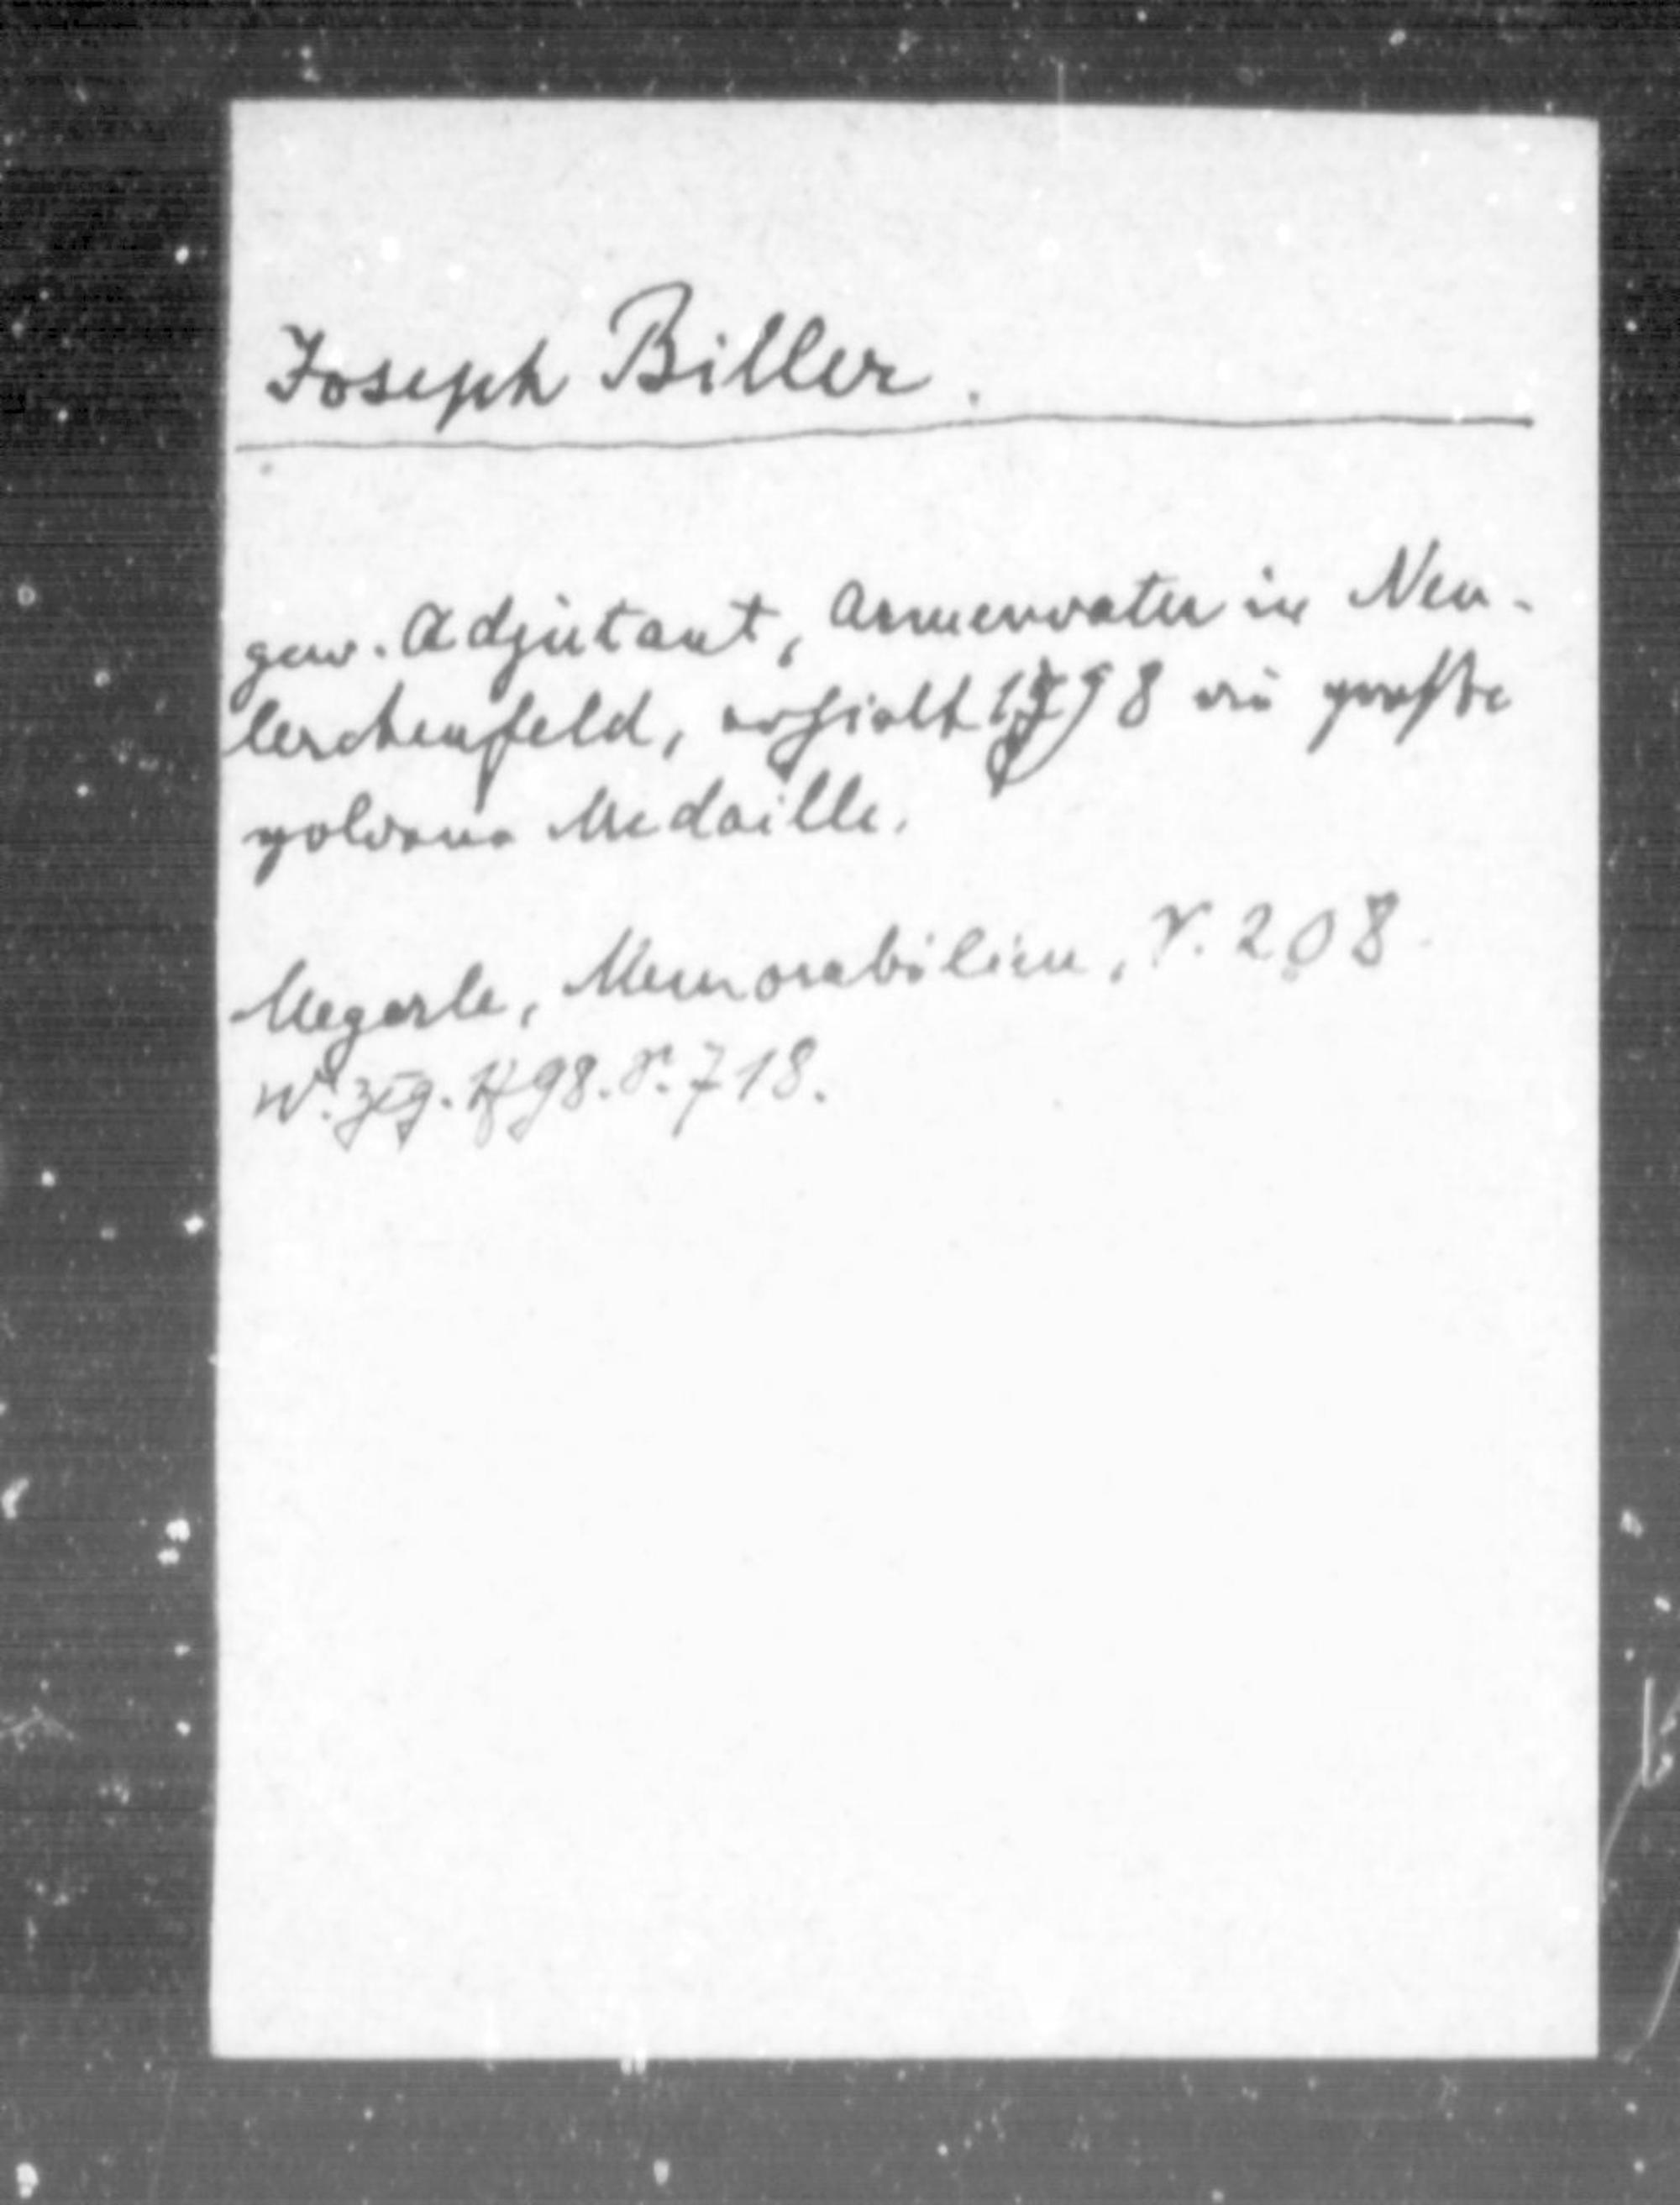 Joseph Biller.
gew. Adjutant, Armenvater in Neu-
lerchenfeld, erhielt 1798 die große
goldene Medaille.
Megerle, Memorabilien, S. 208.
W. Ztg. 1798. S. 718.